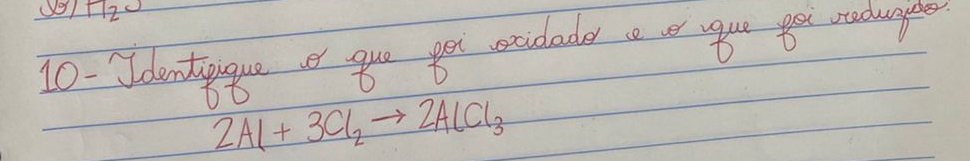 H₂S
10- Identifique o que foi oxidado e o que foi reduzido.
2Al + 3Cl₂ → 2AlCl₃